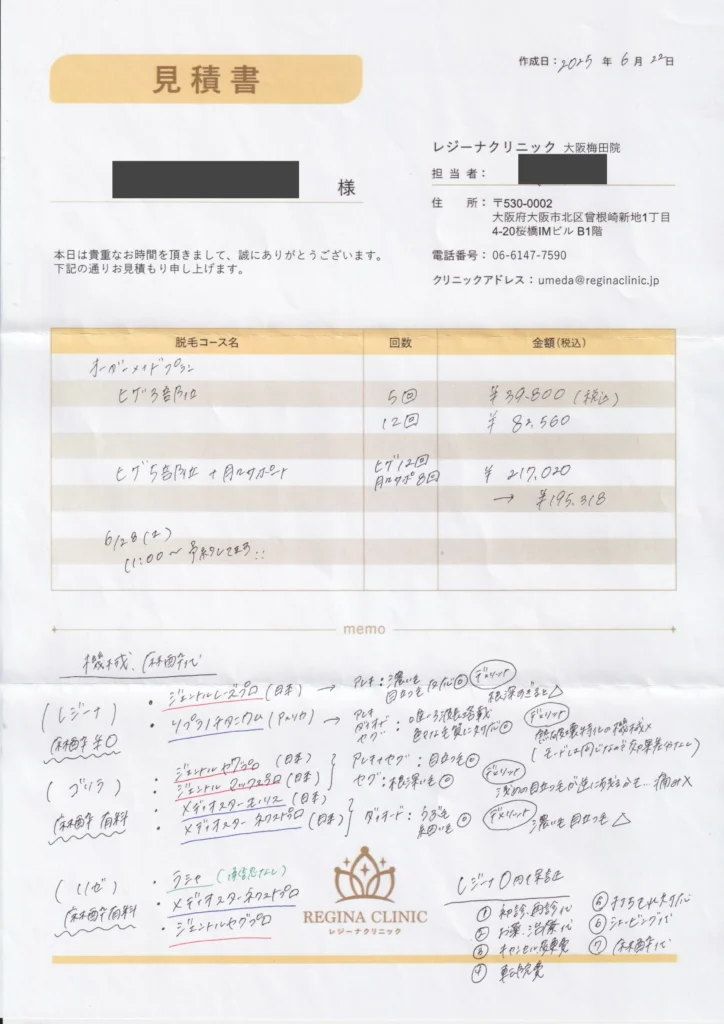 見積書
作成日：2025 年 6 月 22日
様
レジーナクリニック 大阪梅田院
担 当 者：
住 所：〒530-0002
大阪府大阪市北区曾根崎新地1丁目
4-20桜橋IMビル B1階
電話番号：06-6147-7590
クリニックアドレス：umeda@reginaclinic.jp
本日は貴重なお時間を頂きまして、誠にありがとうございます。
下記の通りお見積もり申し上げます。
脱毛コース名 回数 金額(税込)
オーダーメイドプラン
ヒゲ3部位 5回 ¥39.800 (税込)
12回 ¥82.560
ヒゲ5部位 + 月口サポート ヒゲ12回 ¥217,020
月口サポ8回
→ ¥195.318
6/28(土)
11:00〜 予約してます!!
memo
機械、麻酔代
(レジーナ)
麻酔￥0
・ジェントルレーズプロ(日本) → アレキ：濃い毛
目立つ毛 対応◎ デメリット
根深すぎると△
・ソプラノチタニウム(アメリカ) → アレキ
ダイオード
ヤグ
：唯一3波長搭載
色んな毛質に対応◎ デメリット
熱破壊特化の機械×
(モードは同じなので効果差分ない)
(ゴリラ)
麻酔 有料
・ジェントルヤグプロ(日本)
・ジェントルマックスプロ(日本)
アレキ+ヤグ：目立つ毛◎
ヤグ：根深い毛◎ デメリット
浅めの目立つ毛が逆に 痛み×
・メディオスターモノリス(日本)
・メディオスターネクストプロ(日本)
ダイオード：うぶ毛
◎ デメリット 濃い毛 目立つ毛△
(リゼ)
麻酔有料
・ラシャ
・メディオスターネクストプロ
・ジェントルヤグプロ
REGINA CLINIC
レジーナクリニック
レジーナ0円保証
① 初診、再診代
② お薬、治療代
③ キャンセル変更費
④ 転院費
⑤ 打ちもれ対応
⑥ シェービング代
⑦ 麻酔代